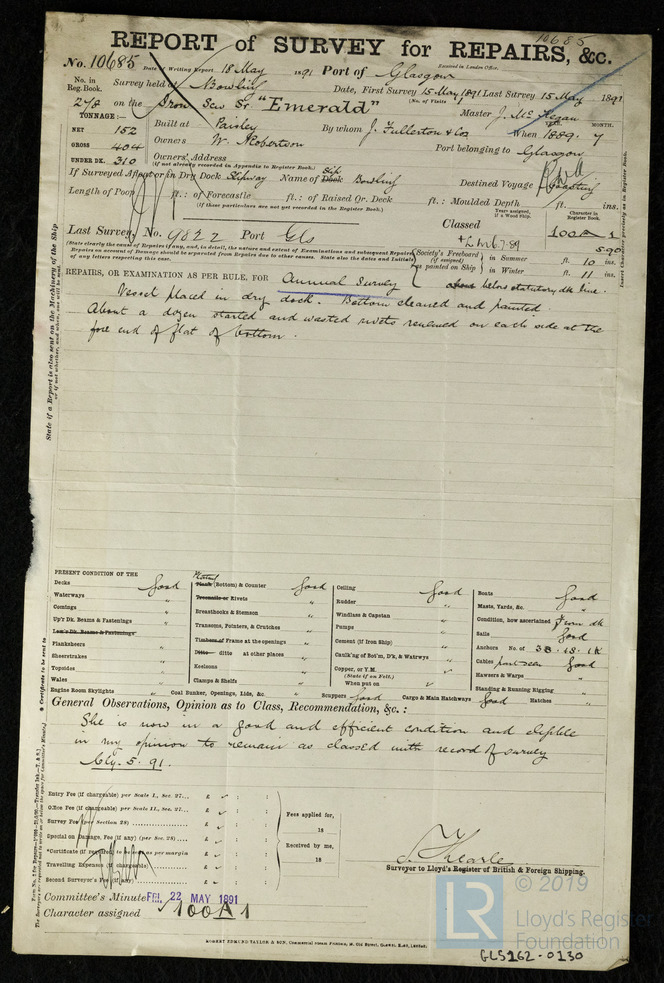 10685
REPORT of SURVEY for REPAIRS, &c.
No. 10685 Date of Writing Report 18 May 1891 Port of Glasgow Received in London Office
No. in Reg. Book. Survey held at Bowling Date, First Survey 15 May 1891 Last Survey 15 May 1891
(No. of Visits
278 on the Iron Scw Sr "Emerald" Master J. Mc
TONNAGE:—
NET 152
GROSS 404
UNDER DK. 310
Built at Paisley By whom J. Fullerton & Co When 1889. MONTH. 7
Owners W. Robertson Port belonging to Glasgow
Owners' Address
(if not already recorded in Appendix to Register Book.)
If Surveyed Afloat or in Dry Dock Slipway Name of Slip Dock Bowling Destined Voyage Coasting
Length of Poop ft.: of Forecastle ft.: of Raised Qr. Deck ft.: Moulded Depth ft. ins.
(If these particulars are not yet recorded in the Register Book.)
Years assigned, if a Wood Ship. Character in Register Book.
Last Survey No. 9822 Port Gls Classed 100A 1
5.90
(State clearly the cause of Repairs, if any, and, in detail, the nature and extent of Examinations and subsequent Repairs. Repairs on account of Damage should be separated from Repairs due to other causes. State also the dates and Initials of any letters respecting this case.
Society's Freeboard (if assigned) as painted on Ship in Summer ft. 10 ins.
in Winter ft. 11 ins.
below statutory dk line.
REPAIRS, OR EXAMINATION AS PER RULE, FOR Annual Survey
Vessel placed in dry dock. Bottom cleaned and painted.
About a dozen started and wasted rivets renewed on each side at the
fore end of flat of bottom.
State if a Report is also sent on the Machinery of the Ship
PRESENT CONDITION OF THE
Decks good
Waterways "
Comings "
Up'r Dk. Beams & Fastenings "
Low'r Dk. Beams & Fastenings
Planksheers "
Sheerstrakes "
Topsides "
Wales "
Engine Room Skylights "
Plating Plank (Bottom) & Counter good
Treenails or Rivets "
Breasthooks & Stemson "
Transoms, Pointers, & Crutches "
Timbers of Frame at the openings "
Ditto ditto at other places "
Keelsons "
Clamps & Shelfs "
Coal Bunker, Openings, Lids, &c. "
Ceiling good
Rudder "
Windlass & Capstan "
Pumps "
Cement (if Iron Ship) "
Caulk'ng of Bot'm, D'k, & Watrwys "
Copper, or Y.M.
(State if on Felt.)
When put on
Scuppers good Cargo & Main Hatchways good Hatches "
Boats good
Masts, Yards, &c. "
Condition, how ascertained From dk
Sails good
Anchors No. of 3B. 1S. 1K
Cables part seen good
Hawsers & Warps "
Standing & Running Rigging "
General Observations, Opinion as to Class, Recommendation, &c. :
She is now in a good and efficient condition and eligible
in my opinion to remain as classed with record of survey
Gly. 5. 91.
Entry Fee (if chargeable) per Scale I., Sec. 27... £ : :
Office Fee (if chargeable) per Scale II., Sec. 27... £ : :
Survey Fee (per Section 28) £ : :
Special on Damage, Fee (if any) (per Sec. 28) £ : :
*Certificate (if required) to be sent as per margin £ : :
Travelling Expenses (if chargeable) £ : :
Second Surveyor's Fee (if any) £ : :
Fees applied for,
18
Received by me,
18
Surveyor to Lloyd's Register of British & Foreign Shipping.
Committee's Minute FRI. 22 MAY 1891
Character assigned 100A1
© 2019
LR
Lloyd's Register
Foundation
GLS162-0130